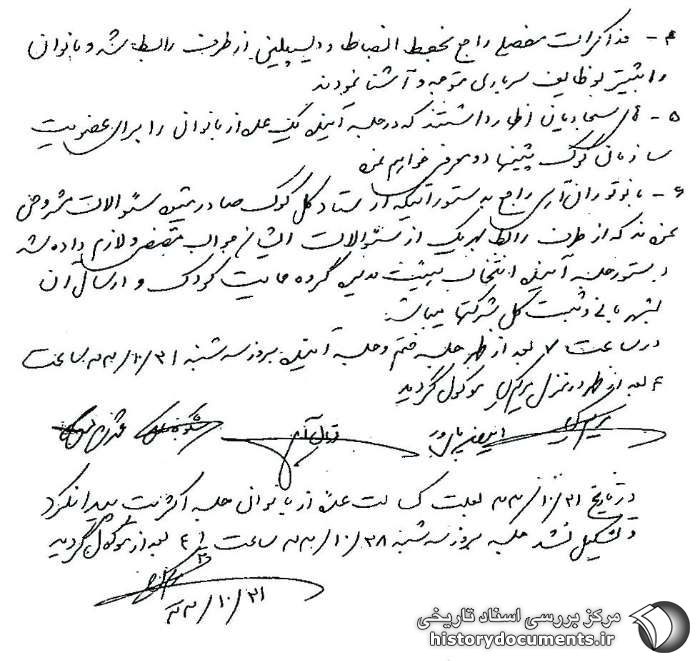 ۴- مذاکرات مفصلی راجع بحفظ انضباط و دیسیپلین از طرف رابط شد و بانوان
را بیشتر بوظایف سربازی متوجه و آشنا نمودند
۵- اظهار داشتند که در جلسه آینده یک عده از بانوان را برای عضویت
سازمان کوک پیشنهاد و معرفی خواهم نمود
۶- بانو توران آری راجع به دستوراتیکه از ستاد کل کوک صادر شده سئوالات مشروحی
نمودند که از طرف رابط بهر یک از سئوالات ایشان جواب مقتضی و لازم داده شد
دستور جلسه آینده انتخاب هیئت مدیره گروه حمایت کودک و ارسال آن
بشهربانی و ثبت کل شرکتها میباشد
در ساعت ۷ بعد از ظهر جلسه ختم و جلسه آینده بروز سه شنبه ۴۳/۱۰/۲۱ ساعت
۴ بعد از ظهر در منزل موکول گردید
توران آری
در تاریخ ۴۳/۱۰/۲۱ بعلت عده از بانوان جلسه اکثریت پیدا نکرد
و تشکیل نشد جلسه بروز سه شنبه ۴۳/۱۰/۲۸ ساعت ۴ بعد از موکول گردید
۴۳/۱۰/۲۱
مرکز بررسی اسناد تاریخی
historydocuments.ir